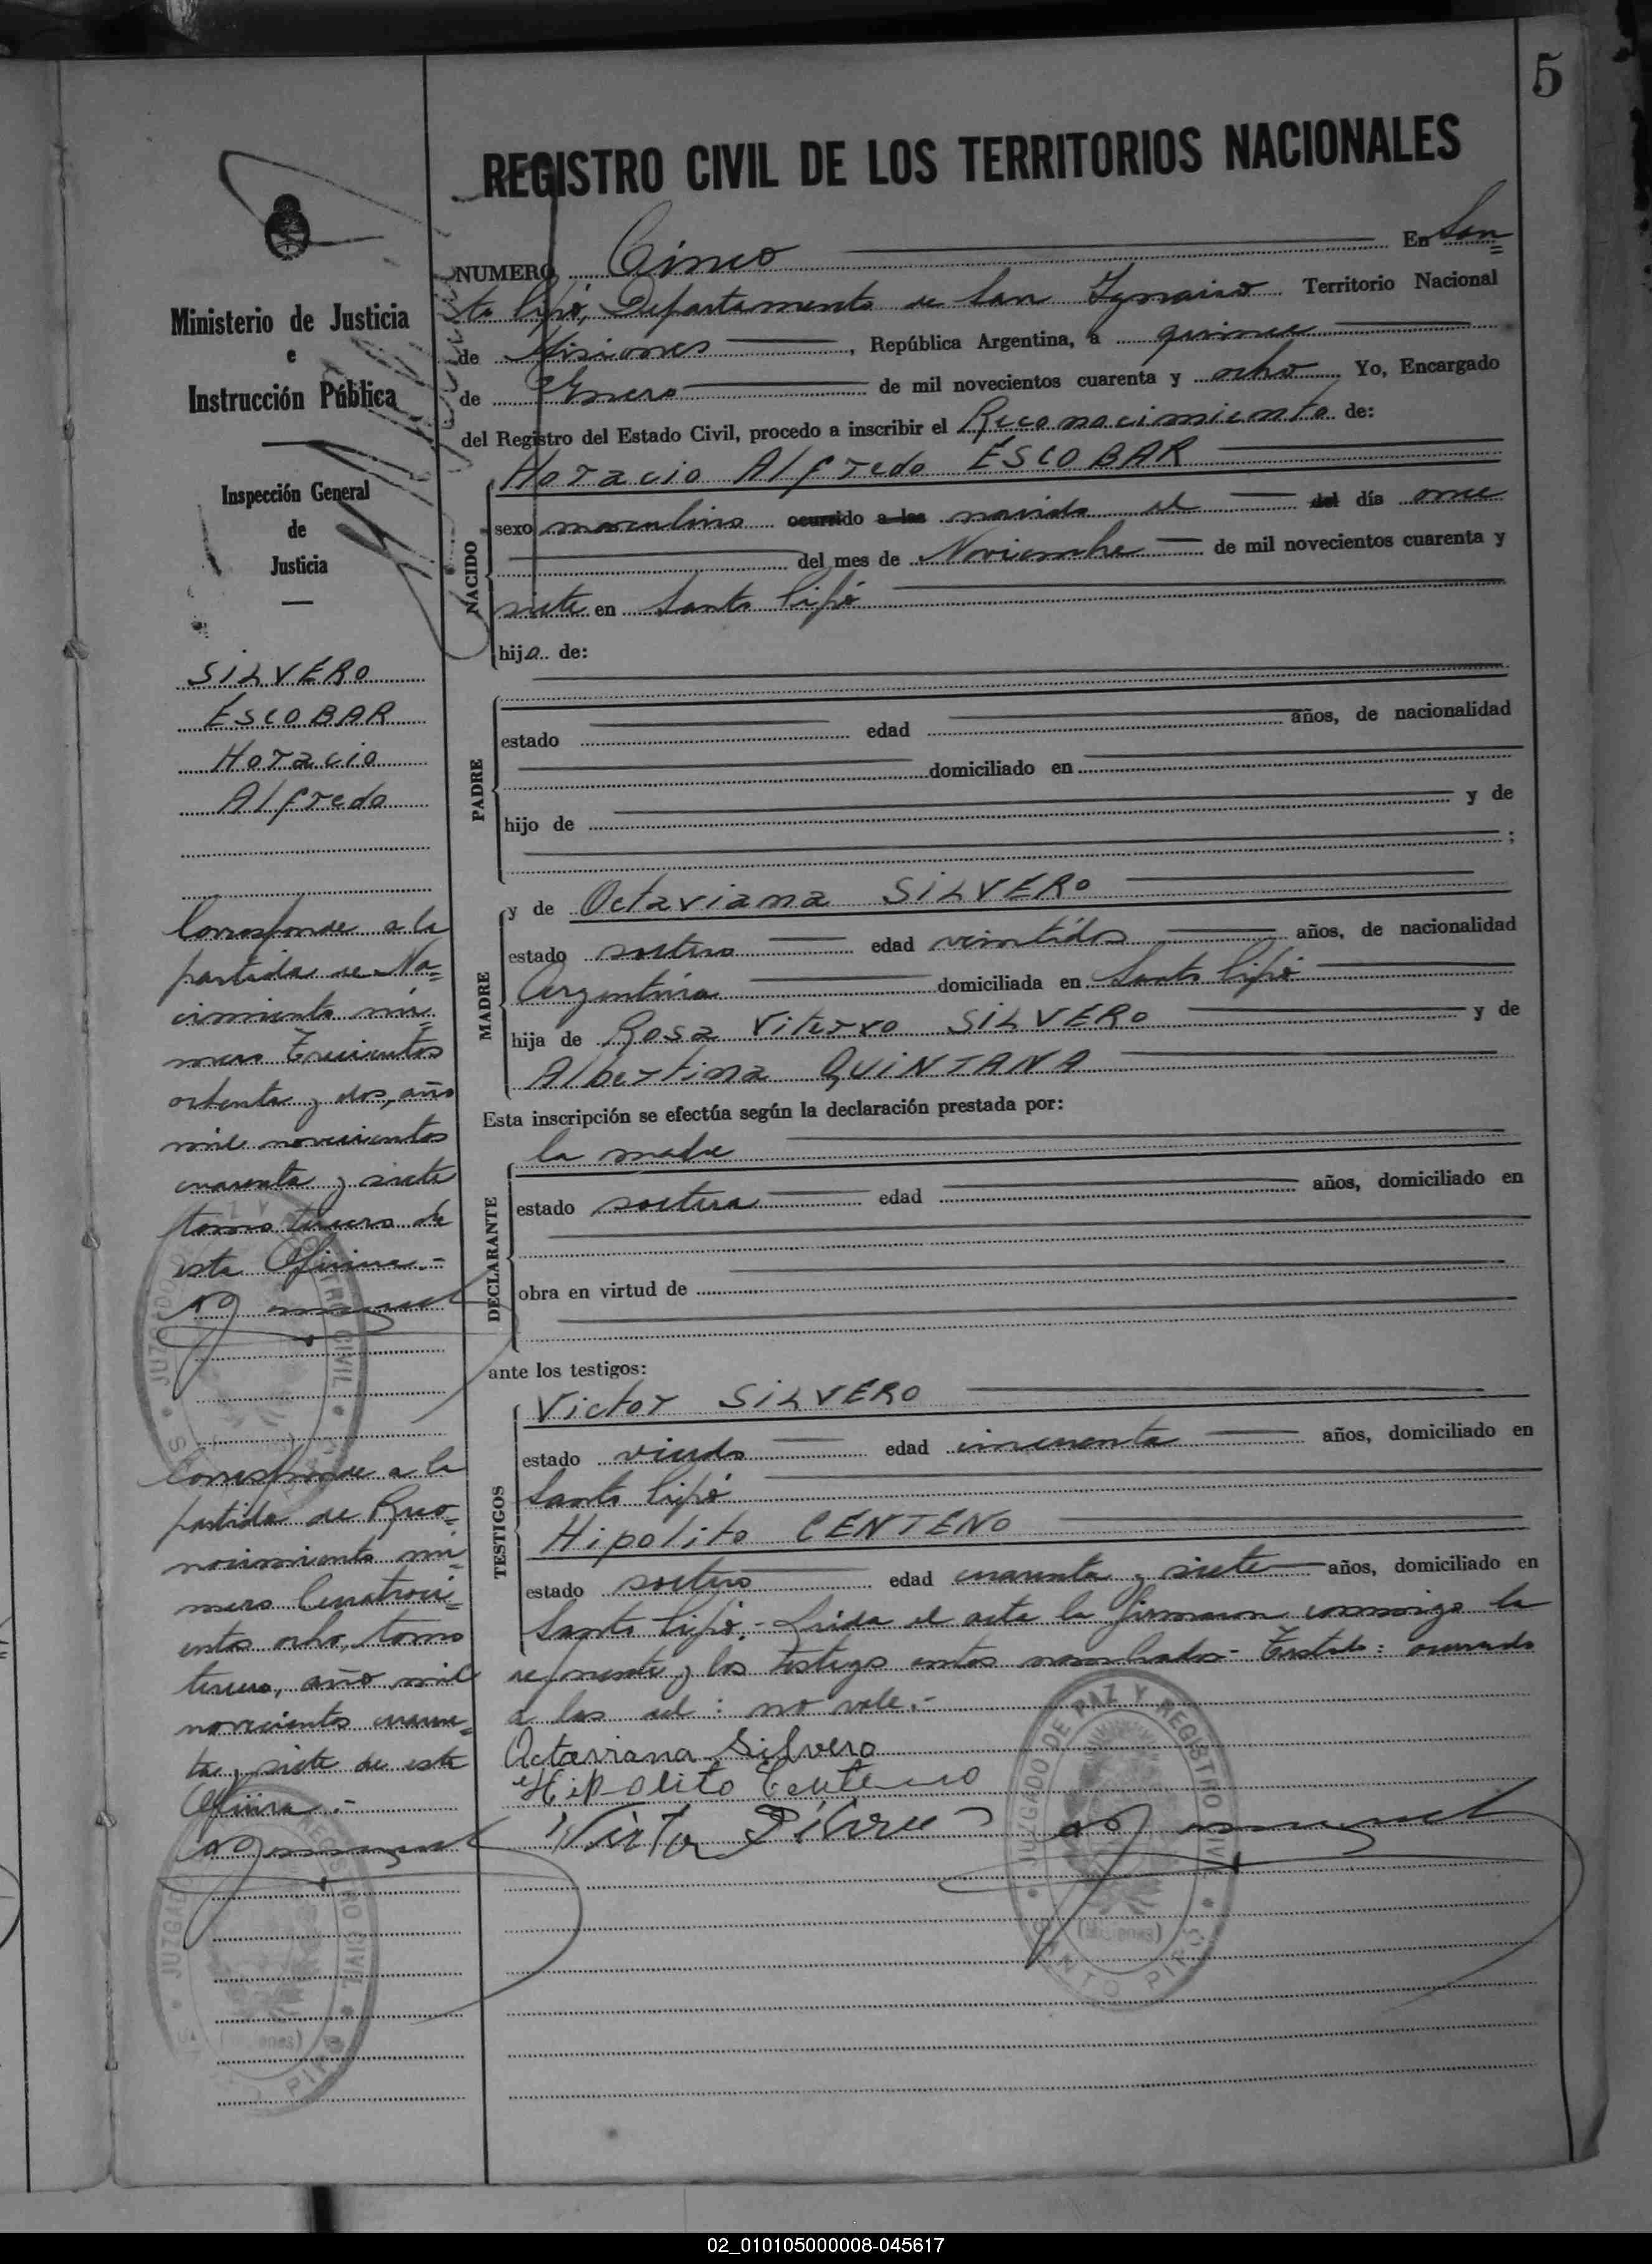 5
REGISTRO CIVIL DE LOS TERRITORIOS NACIONALES
NUMERO Cinco En San=
to Pipó, Departamento de San Ygnacio Territorio Nacional
de Misiones, República Argentina, a quince
de Enero de mil novecientos cuarenta y ocho Yo, Encargado
del Registro del Estado Civil, procedo a inscribir el Reconocimiento de:
NACIDO
Horacio Alfredo ESCOBAR
sexo masculino ocurrido a las nacido el del día once
del mes de Noviembre de mil novecientos cuarenta y
siete en Santo Pipó
hijo de:
PADRE
estado edad años, de nacionalidad
domiciliado en
hijo de y de
;
MADRE
y de Octaviana SILVERO
estado soltera edad veintidos años, de nacionalidad
Argentina domiciliada en Santo Pipó
hija de Rosa Vitervo SILVERO y de
Albertina QUINTANA
Esta inscripción se efectúa según la declaración prestada por:
DECLARANTE
la madre
estado soltera edad años, domiciliado en
obra en virtud de
ante los testigos:
TESTIGOS
Victor SILVERO
estado viudo edad cincuenta años, domiciliado en
Santo Pipó
Hipolito CENTENO
estado soltero edad cuarenta y siete años, domiciliado en
Santo Pipó.- Leida el acta la firmaron conmigo la
y los testigos antes nombrados- Testado: ocurrido
a las del: no vale.-
Octaviana Silvero
Hipolito Centeno
Victor Silvero
JUZGADO DE PAZ Y REGISTRO CIVIL
SANTO PIPÓ
(Misiones)
Ministerio de Justicia
e
Instrucción Pública
Inspección General
de
Justicia
SILVERO
ESCOBAR
Horacio
Alfredo
Corresponde a la
partida de Na=
cimiento nú=
mero Trecientos
ochenta y dos, año
mil novecientos
cuarenta y siete
tomo tercero de
esta Oficina.-
Corresponde a la
partida de Reco=
nocimiento nú=
mero Cuatroci=
entos ocho, tomo
tercero, año mil
novecientos cuaren=
ta y siete de esta
Oficina.-
02_010105000008-045617